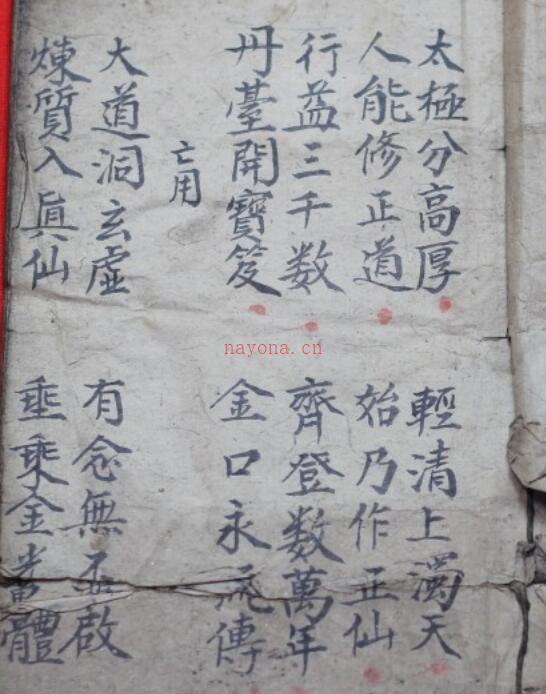 太極分高厚 輕清上濁天
人能修正道 始乃作正仙
行益三千数 齊登数萬年
丹臺開寶笈 金口永流傳
亡用
大道洞玄虛 有念無丕啟
煉質入眞仙 垂乘金體
nayona.cn